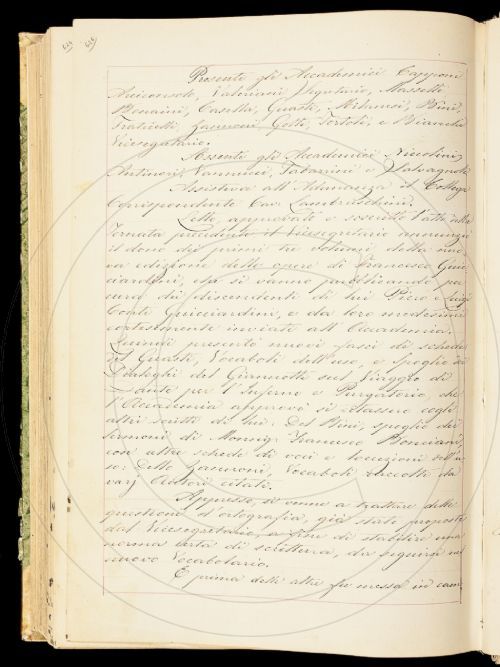 Presenti gli Accademici Capponi
Arciconsolo, Valeriani Segretario, Masselli
Bonaini, Casella, Guasti, Milanesi, Bini,
Fraticelli, Zannoni, Gotti, Tortoli, e Bianchi
Vicesegretario.
Assenti gli Accademici Niccolini,
Antinori, Vannucci, Tabarrini e Salvagnoli
Assisteva all'Adunanza il Collega
Corrispondente Cav. Lambruschini.
Letto, approvato e soscritto l'atto della
Tornata precedente il Vicesegretario annunzia
il dono dei primi tre volumi della nuo
va edizione delle opere di Francesco Guic
ciardini, che si vanno pubblicando per
cura dei discendenti di lui Piero e Luigi
Conti Guicciardini, e da loro medesimi
cortesemente inviate all'Accademia.
Quindi presentò nuovi fasci di schede
del Guasti, Vocaboli dell'uso, e spoglio dei
Dialoghi del Giannotti sul Viaggio di
Dante per l'Inferno e Purgatorio, che
l'Accademia approvò si citassero cogli
altri scritti di lui: Del Bini, spoglio dei
sermoni di Monsig. Francesco Bonciani,
con altre schede di voci e locuzioni dell'u
so: Dello Zannoni, Vocaboli raccolti da
varj Autori citati.
Appresso, si venne a trattare delle
questioni d'ortografia, già state proposte
dal Vicesegretario, a fine di stabilire una
norma certa di scrittura, da seguirsi nel
nuovo Vocabolario.
E prima delle altre fu messa in cam